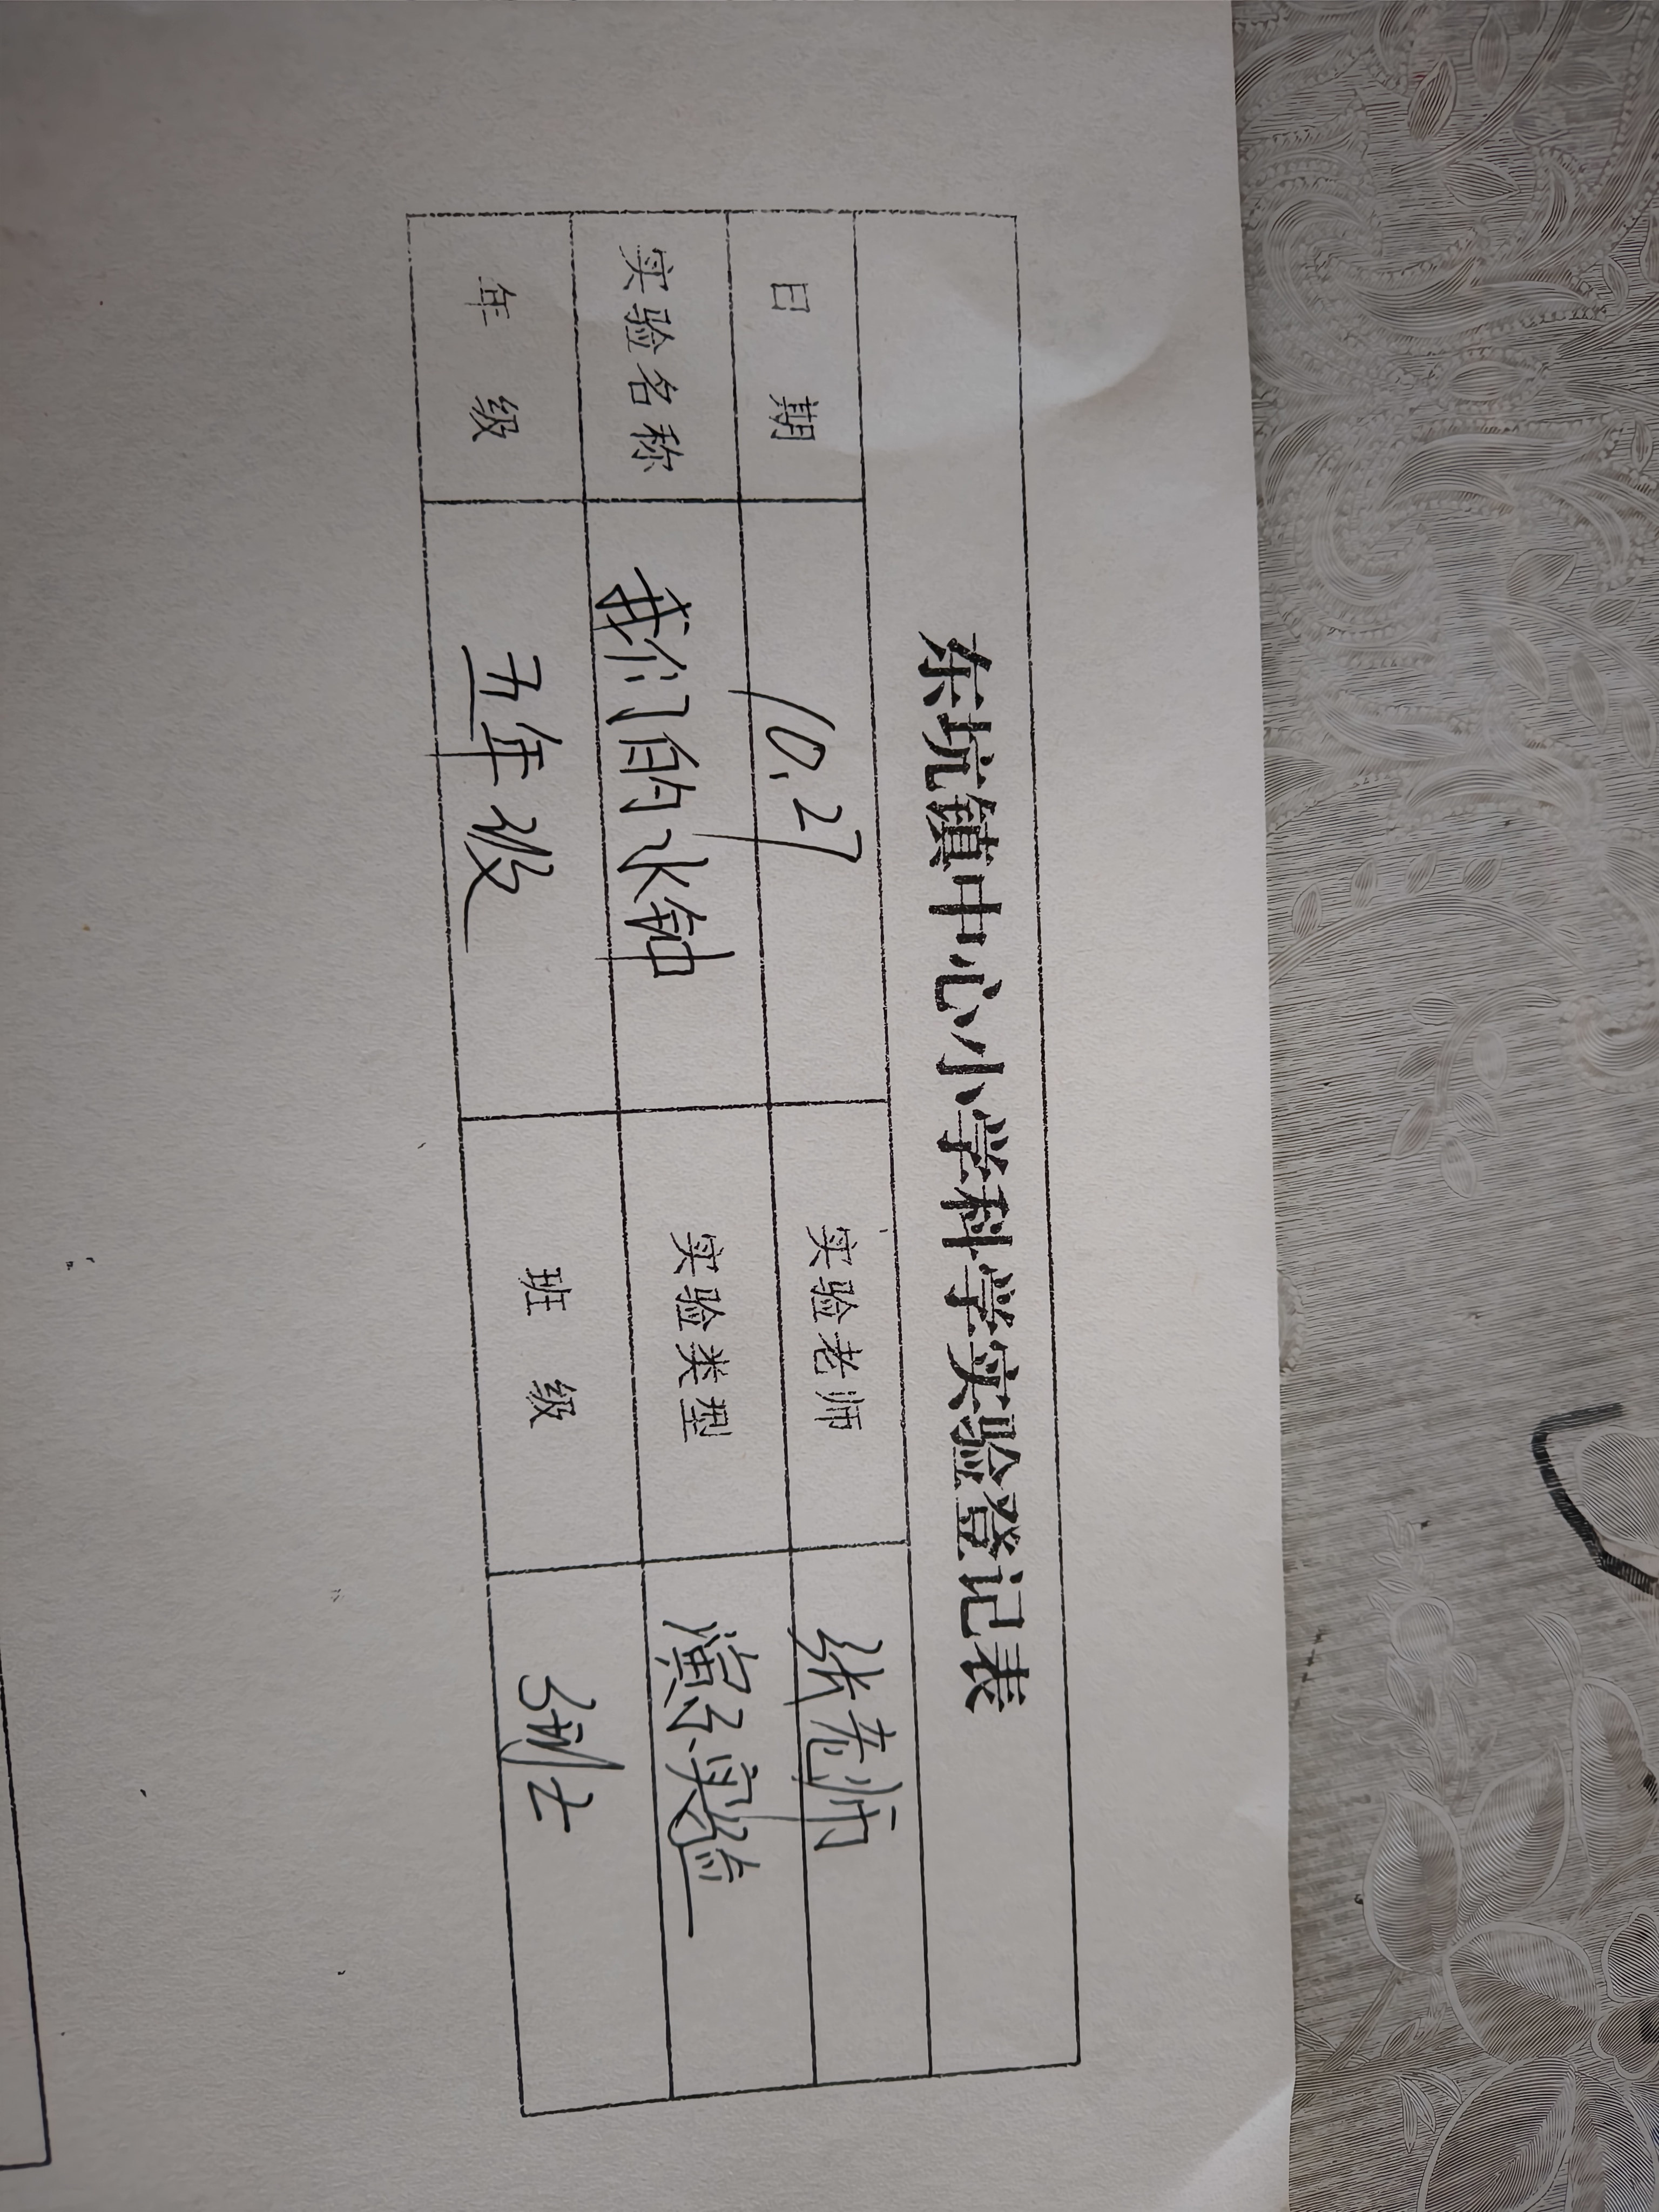 东坑镇中心小学科学实验登记表
日 期 10.27 实验老师 张老师
实验名称 我们的水钟 实验类型 演示实验
年 级 五年级 班 级